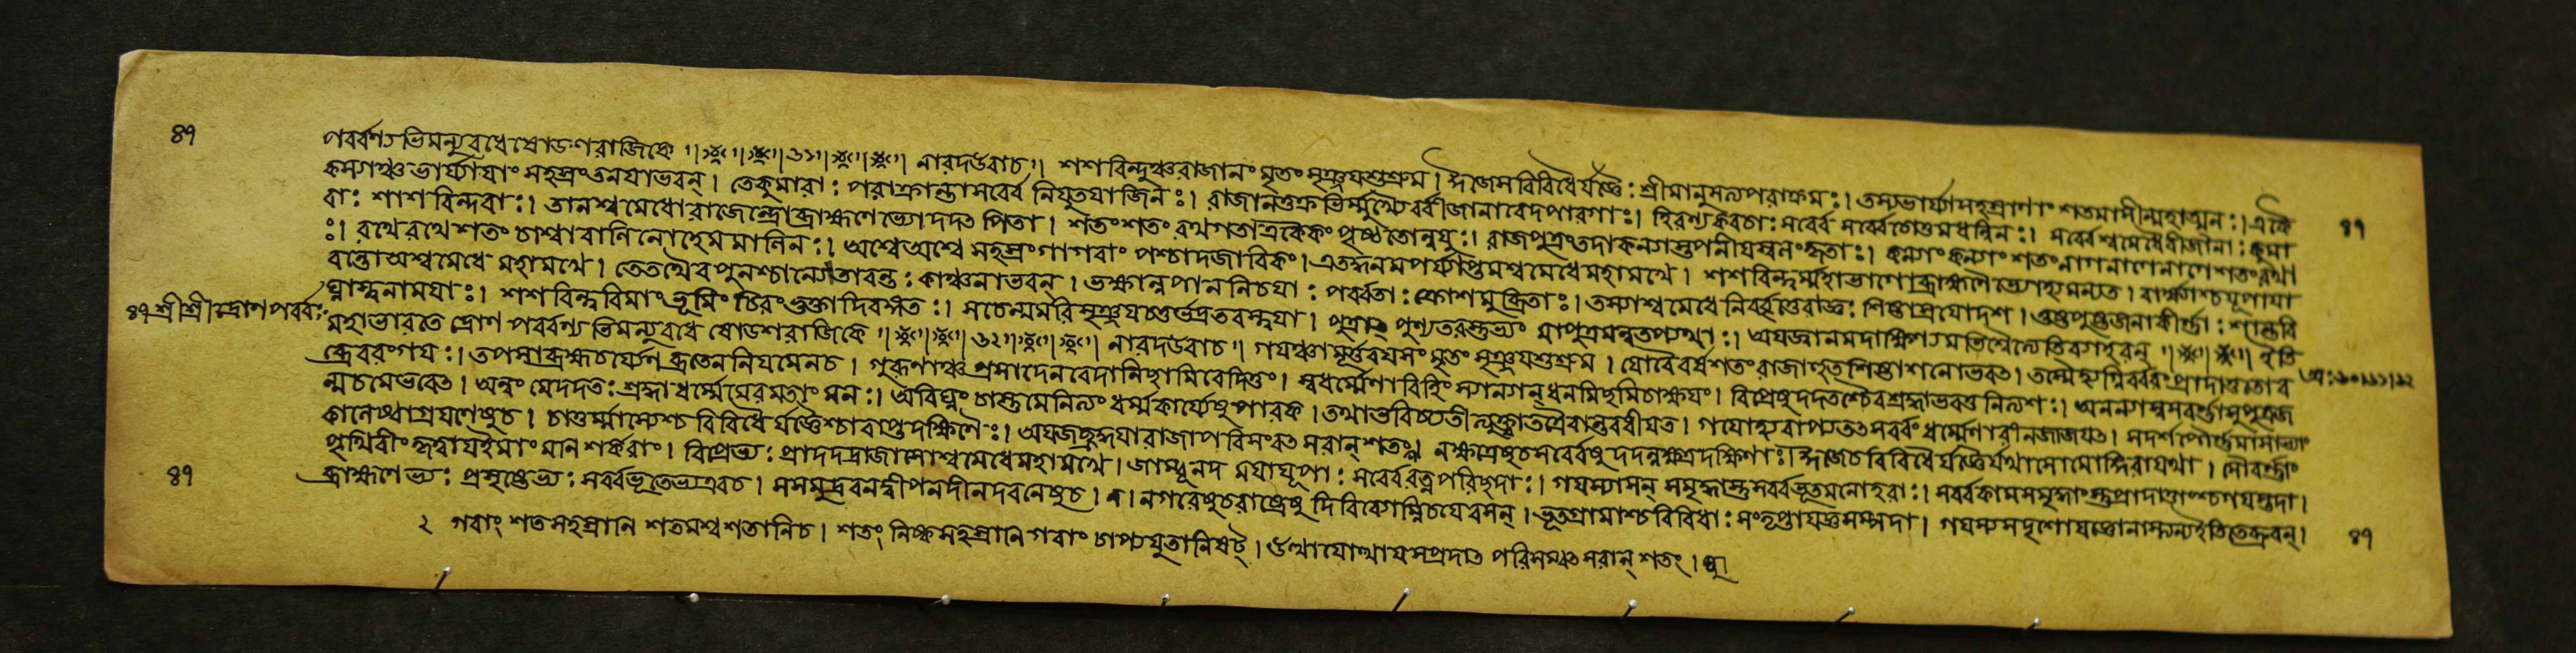 ৪৭ পর্ব্বণ্যভিমন্যুবধেষোডশরাজিকে ॥ ॥ ॥৬১॥ ॥ ॥ নারদউবাচ ॥ শশবিন্দুঞ্চরাজানং মৃতং সৃঞ্জযশুশ্রুম । ঈজেসবিবিধৈর্যজ্ঞৈঃ শ্রীমানুসত্যপরাক্রমঃ । তস্যভার্য্যাসহস্রাণাং শতমাসীন্মহাত্মনঃ । একৈ
কস্যাঞ্চভার্য্যাযাং সহস্রংতনযাভবন্ । তেকুমারাঃ পরাক্রান্তাসর্ব্বে নিযুতযাজিনঃ । রাজানঃক্রতুভির্ম্মুখ্যৈরীজানাবেদপারগাঃ । হিরণ্যকবচাঃ সর্ব্বে সর্ব্বেচোত্তমধন্বিনঃ । সর্ব্বেশ্বমেধৈরীজানাঃ কুমা ৪৭
রাঃ শাশবিন্দবাঃ । তানশ্বমেধোরাজেন্দ্রোব্রাহ্মণেভ্যোদদৎ পিতা । শতংশতং রথগতাএকৈকং পৃষ্ঠতোন্বযুঃ । রাজপুত্রংতদাকন্যাস্তপনীযস্বলংকৃতাঃ । কন্যাং কন্যাং শতংনাগানাগেনাগে শতংরথা
ঃ । রথেরথেশতং চাশ্বাবলিনোহেমমালিনঃ । অশ্বেঅশ্বে সহস্রংগাগবাং পশ্চাদজাবিকং । এতদ্ধনমপর্য্যাপ্তমশ্বমেধেমহামখে । শশবিন্দুর্ম্মহাভাগোব্রাহ্মণেভ্যোহ্যমন্যত । বার্ক্ষ্যাশ্চযূপাযা
বন্তোঅশ্বমেধে মহামখে । তেতথৈবপুনশ্চান্যেতাবন্তঃ কাঞ্চনাভবন্ । ভক্ষ্যান্নপাননিচযাঃ পর্ব্বতাঃ ক্রোশমুচ্ছ্রিতাঃ । তস্যাশ্বমেধে নির্বৃত্তেরাজ্ঞঃ শিষ্টাস্ত্রযোদশ । তুষ্টপুষ্টজনাকীর্ণাং শান্তবি
ঘ্নামনামযাং । শশবিন্দুরিমাং ভূমিং চিরংভুক্তাদিবঙ্গতঃ । সচেন্মমারসৃঞ্জযচতুর্ভদ্রতরস্ত্বযা । পুত্রাৎ পুণ্যতরস্তুভ্যং মাপুত্রমনুতপ্যথাঃ । অযজ্বানমদাক্ষিণ্যমভিশ্বৈত্যেতিব্যাহরন্ ॥ ॥ ॥ ইতি
৪৭ শ্রীশ্রীদ্রোণপর্ব্বঃ মহাভারতে দ্রোণ পর্ব্বণ্যভিমন্যুবধে ষোডশরাজিকে ॥ ॥ ॥ ৬২॥ ॥ ॥ নারদউবাচ ॥ গযঞ্চামূর্ত্তরযসং মৃতং সৃঞ্জযশুশ্রুম । যোবৈবর্ষশতং রাজাহুতশিষ্টাশনোভবৎ । তস্মৈহ্যগ্নির্ব্বরংপ্রাদাত্ততোব
ব্রেবরংগযঃ । তপসাব্রহ্মচর্য্যেণ ব্রতেননিযমেনচ । গুরূণাঞ্চপ্রসাদেনবেদানিচ্ছামিবেদিতুং । স্বধর্ম্মেণাবিহিংস্যান্যান্ধনমিচ্ছামিচাক্ষযং । বিপ্রেষুদদতশ্চৈবশ্রদ্ধাভবতুনিত্যশঃ । অনন্যাসুসবর্ণাসুপুত্রজ
ন্মচমেভবেৎ । অন্নং মেদদতঃ শ্রদ্ধাধর্ম্মেমেরমতাং মনঃ । অবিঘ্নং চাস্তুমেনিত্যং ধর্ম্মকার্য্যেষুপাবক । তথাভবিষ্যতীত্যুক্ত্বাতত্রৈবান্তরধীযত । গযোহ্যবাপ্যতৎসর্ব্বং ধর্ম্মেণারীনজীজযৎ । সদর্শপৌর্ণমাসাভ্যাং
কালেষ্বাগ্রযণেষুচ । চাতুর্ম্মাস্যৈশ্চবিবিধৈ র্যজ্ঞৈশ্চাবাপ্তদক্ষিণৈঃ । অযজচ্ছ্রদ্ধযারাজাপরিসংবৎসরান্ শতং । নক্ষত্রেষুচসর্ব্বেষুদদন্নক্ষত্রদক্ষিণাঃ । ঈজেচবিবিধৈর্যজ্ঞৈর্যথাসোমোঙ্গিরাযথা । সৌবর্ণাং
পৃথিবীংকৃত্বাযইমাং মণিশর্করাং । বিপ্রেভ্যঃ প্রাদদদ্রাজাসোশ্বমেধেমহামখে । জাম্বূনদ মযাযূপাঃ সর্ব্বেরত্নপরিচ্ছদাঃ । গযস্যাসন্ সমৃদ্ধাস্তুসর্ব্বভূতমনোহরাঃ । সর্ব্বকামসমৃদ্ধাংস্তুপ্রাদাত্তাংশ্চগযস্তদা ।
৪৭ ব্রাহ্মণেভ্যঃ প্রহৃষ্টেভ্যঃ সর্ব্বভূতেভ্যএবচ । সসমুদ্রবনদ্বীপনদীনদবনেষুচ । নগরেষুচরাষ্ট্রেষু দিবিব্যোম্নিচযেবসন্ । ভূতগ্রামাশ্চবিবিধাঃ সংতৃপ্তাযজ্ঞসম্পদা । গযস্যসদৃশোযজ্ঞোনাস্ত্যন্যইতিতেব্রুবন্ । ৪৭
২ গবাং শতসহস্রানি শতমশ্বশতানিচ । শতং নিষ্কসহস্রানি গবাং চাপ্যযুতানিষট্ । উত্থাযোত্থাযসপ্রদাৎ পরিসম্বৎসরান্ শতং ।